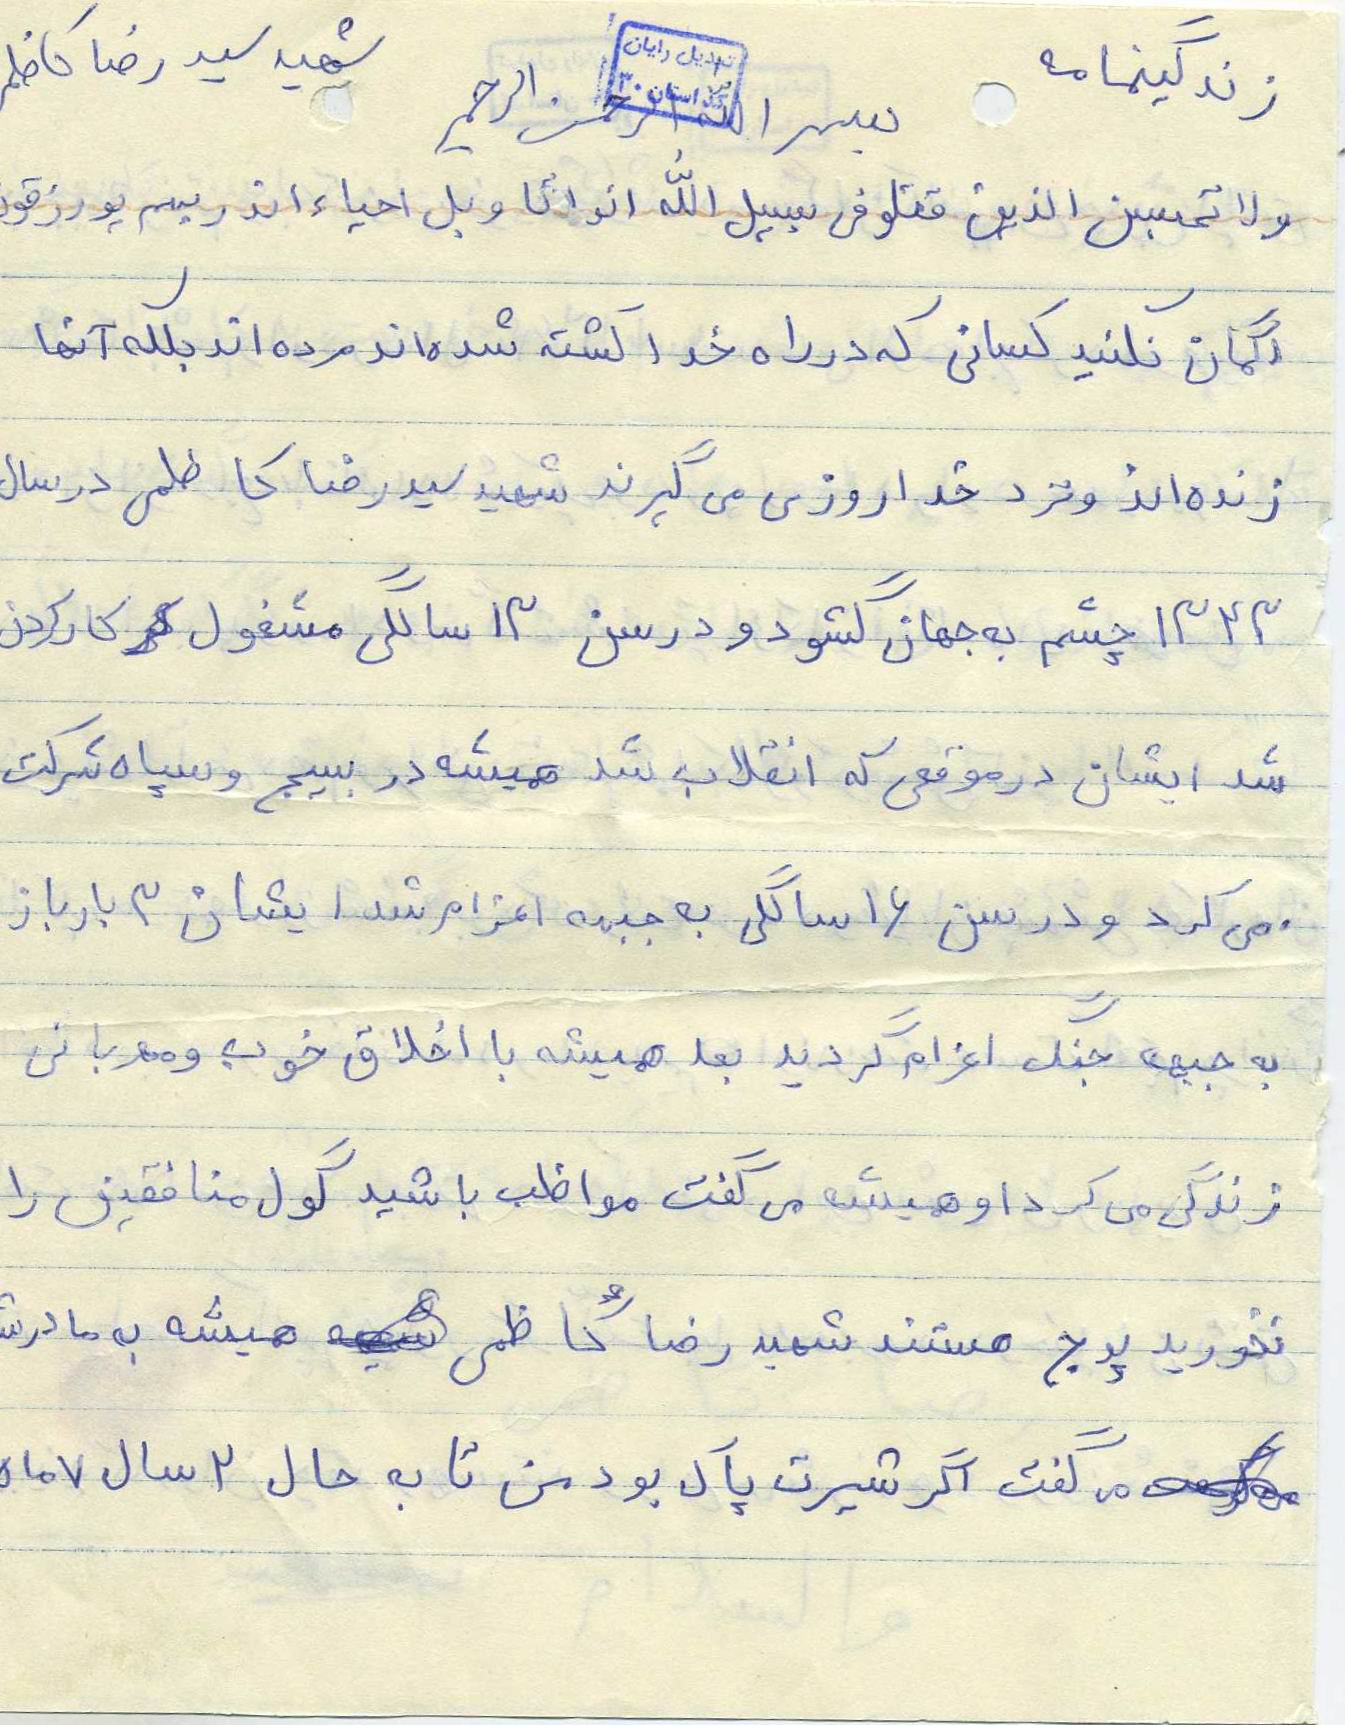 زندگینمامه شهید سید رضا کاظم
بسم الله الرحمن الرحیم
تبدیل رایان
کد استان ۳۰
ولا تحسبن الذین قتلو فی سبیل الله انواتا وبل احیاء اندر بهم یورزقون
گمان نکنید کسانی که در راه خدا کشته شده اند مرده اند بلکه آنها
زنده اند ونزد خدا روزی می گیرند شهید سید رضا کاظمی در سال
۱۳۴۳ چشم به جهان گشود و در سن ۱۳ سالگی مشغول کار کردن
شد ایشان در موقعی که انقلاب شد همیشه در بسیج و سپاه شرکت
می کرد و در سن ۱۶ سالگی به جبهه اعزام شد ایشان ۳ بار باز
به جبهه جنگ اعزام گردید بعد همیشه با اخلاق خوب ومهربانی
زندگی می کرد او همیشه می گفت مواظب باشید گول منافقین را
نخورید پوچ هستند شهید رضا کاظمی همیشه به مادرش
می گفت اگر شیرت پاک بود من تا به حال ۲ سال ۷ ماه